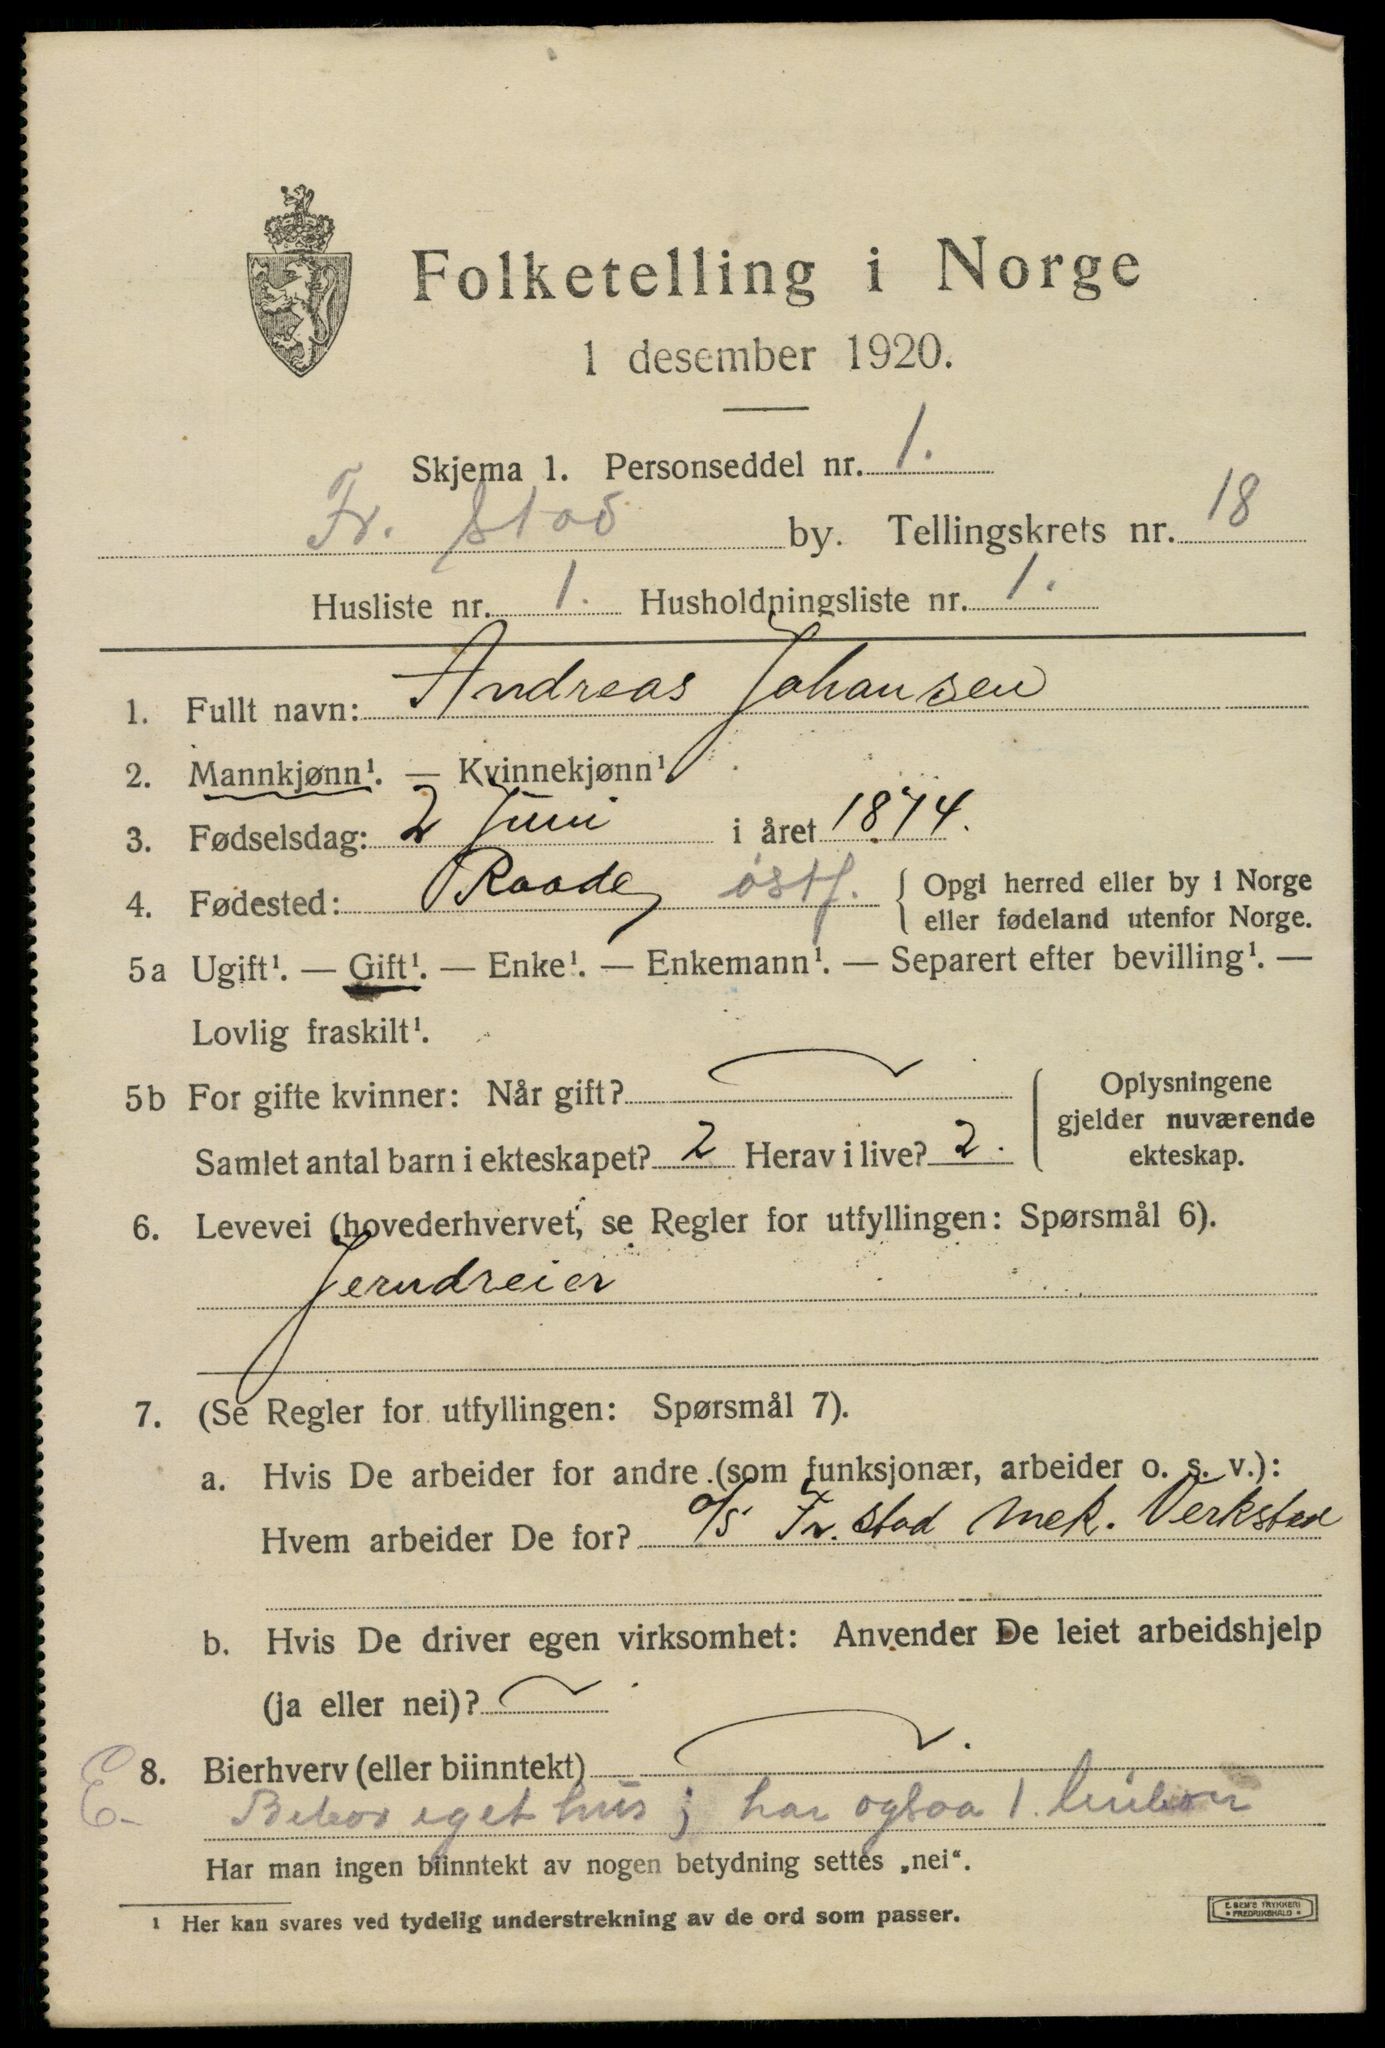 Folketelling i Norge
1 desember 1920.
Skjema 1. Personseddel nr. 1.
Fr. stad by. Tellingskrets nr. 18
Husliste nr. 1. Husholdningsliste nr. 1.
1. Fullt navn: Andreas Johansen
2. Mannkjønn¹. — Kvinnekjønn¹.
3. Fødselsdag: 2 Juni i året 1874.
4. Fødested: Raade østf. { Opgi herred eller by i Norge
eller fødeland utenfor Norge.
5a Ugift¹. — Gift¹. — Enke¹. — Enkemann¹. — Separert efter bevilling¹. —
Lovlig fraskilt¹.
5b For gifte kvinner: Når gift?
Samlet antal barn i ekteskapet? 2 Herav i live? 2.
{ Oplysningene
gjelder nuværende
ekteskap.
6. Levevei (hovederhvervet, se Regler for utfyllingen: Spørsmål 6).
Jerndreier
7. (Se Regler for utfyllingen: Spørsmål 7).
a. Hvis De arbeider for andre (som funksjonær, arbeider o. s. v.):
Hvem arbeider De for? A/S Fr. stad Mek. Verksted
b. Hvis De driver egen virksomhet: Anvender De leiet arbeidshjelp
(ja eller nei)?
8. Bierhverv (eller biinntekt)
E. Bebor eget hus; har ogsaa 1.
Har man ingen biinntekt av nogen betydning settes „nei“.
¹ Her kan svares ved tydelig understrekning av de ord som passer.
E. SEM'S TRYKKERI
• FREDRIKSHALD •